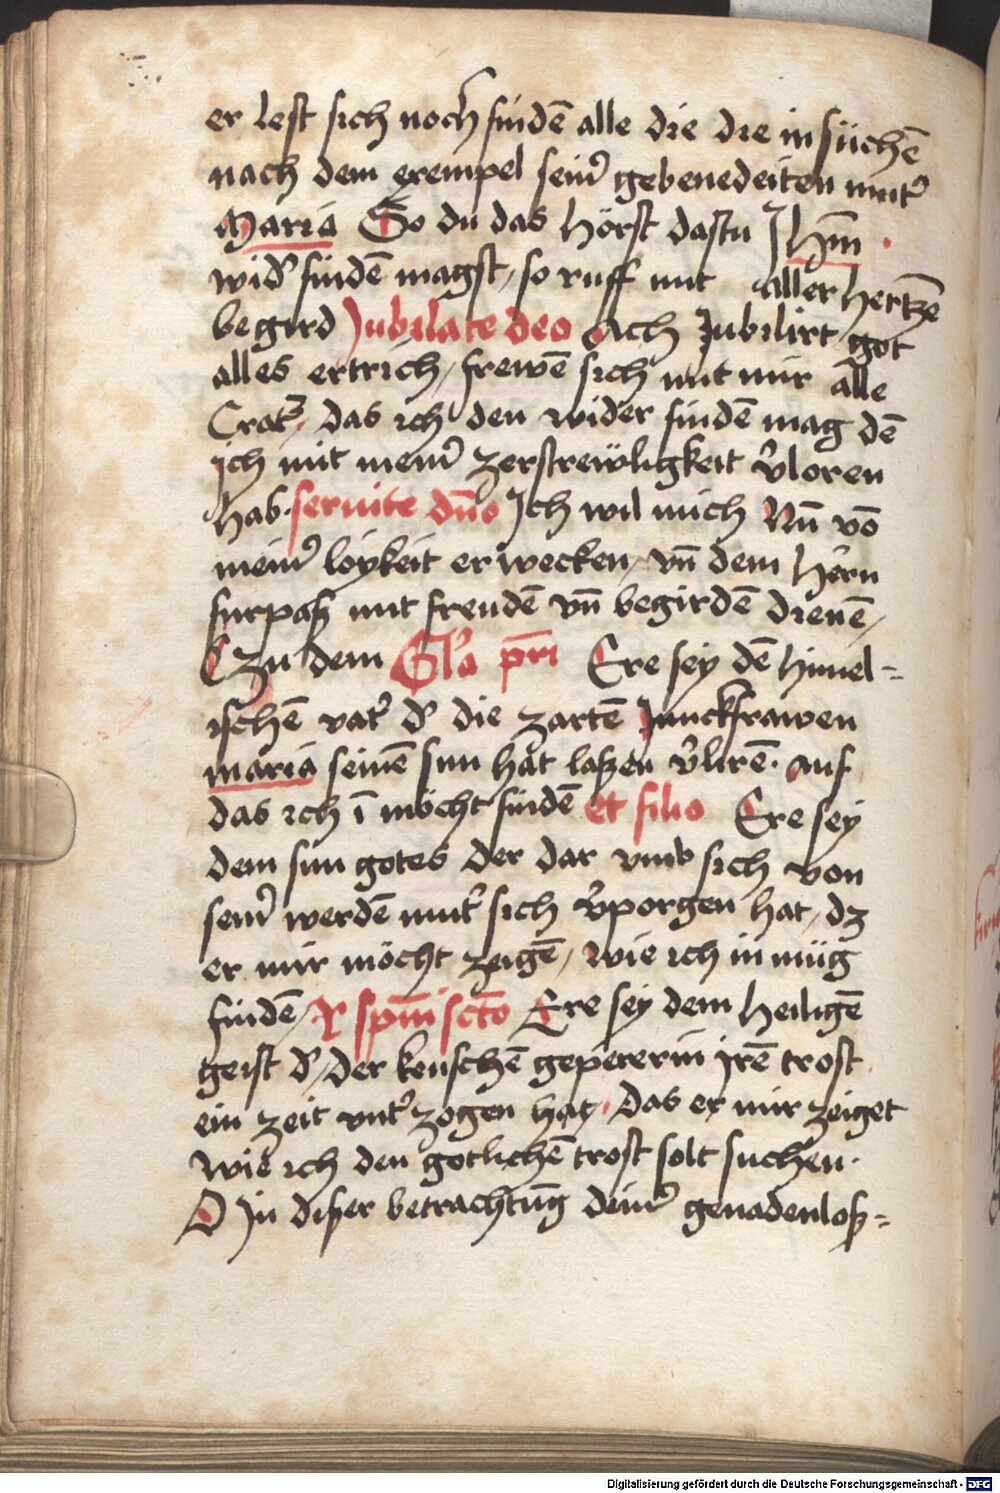 er lest sich noch findē alle die die in sůchē
nach dem exempel seinr̄ gebenedeiten mutr̄
Maria So du das hörst dastu Jhm̄
wid' findē magst, so ruff mit aller hertzē
begird Jubilate deo Ach Jubilirt got
alles ertrich, frewē sich mit mir alle
Creatr̄, das ich den wider findē mag dē
ich mit meinr̄ zerstrewligkeit v'loren
hab. seruite dn̄o Ich wil mich Nū vō
meinr̄ löykeit erwecken, vn̄ dem hern
furpaß mit freudē vn̄ begirdē dienē,
zu dem Gl'a pr̄i Ere sey dē himel=
ischē vatr̄ d' die zartē Junckfrawen
maria seinē sun hat laßen v'lirē. auf
das ich ī möcht findē et filio Ere sey
dem sun gotes der dar vmb sich von
seinr̄ werdē mutr̄ sich v'porgen hat, dz
er mir möcht zeigē, wie ich in müg
findē, Et spūi sctō Ere sey dem heiligē
geist d', der keuschē gepererin irē trost
ein zeit vntr̄zogen hat, das er mir zeiget
wie ich den gotlichē trost solt suchen.
O In dißer betrachtūg deinr̄ genadenloß=
Digitalisierung gefördert durch die Deutsche Forschungsgemeinschaft - DFG